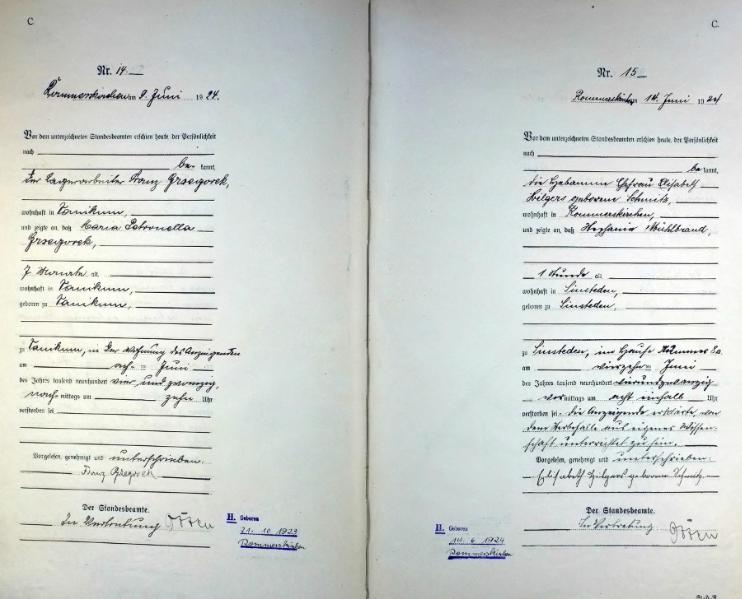 C
Nr. 14
Rommerskirchen am 9. Juni 1924.
Vor dem unterzeichneten Standesbeamten erschien heute, der Persönlichkeit
nach
be kannt,
der Lagerarbeiter Franz Grzegorek,
wohnhaft in Vanikum,
und zeigte an, daß Maria Petronella
Grzegorek,
7 Monate alt
wohnhaft in Vanikum,
geboren zu Vanikum,
zu Vanikum, in der Wohnung des Anzeigenden
am acht Juni
des Jahres tausend neunhundert vier und zwanzig
nach mittags um zehn Uhr
verstorben sei
Vorgelesen, genehmigt und unterschrieben.
Franz Grzegorek
Der Standesbeamte.
In Vertretung
H. Geboren
21. 10 1923
Rommerskirchen
C.
Nr. 15
Rommerskirchen am 14. Juni 1924
Vor dem unterzeichneten Standesbeamten erschien heute, der Persönlichkeit
nach
be kannt,
die Hebamme Ehefrau Elisabeth
Hilgers geborene Schmitz,
wohnhaft in Rommerskirchen,
und zeigte an, daß Stephanie Mühlbrand,
1 Stunde
wohnhaft in Sinsteden,
geboren zu Sinsteden,
zu Sinsteden, im Hause Nummer
am vierzehn Juni
des Jahres tausend neunhundert vierundzwanzig
vor mittags um acht einhalb Uhr
verstorben sei. die Anzeigende erklärte, von
dem Sterbefalle aus eigener Wissen-
schaft unterrichtet zu sein.
Vorgelesen, genehmigt und unterschrieben.
Elisabeth Hilgers geborene Schmitz
Der Standesbeamte.
In Vertretung
H. Geboren
14. 6 1924
Rommerskirchen